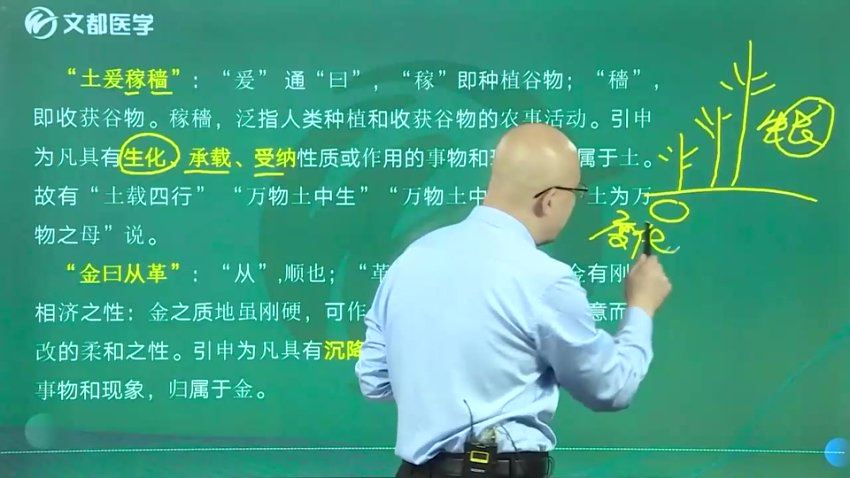 文都医学
“土爰稼穑”：“爰”通“曰”，“稼”即种植谷物；“穑”，
即收获谷物。稼穑，泛指人类种植和收获谷物的农事活动。引申
为凡具有生化、承载、受纳性质或作用的事物和 属于土。
故有“土载四行”“万物土中生”“万物土中 土为万
物之母”说。
“金曰从革”：“从”,顺也；“ 金有刚
相济之性：金之质地虽刚硬，可作 意而
改的柔和之性。引申为凡具有沉降
事物和现象，归属于金。
生长
变化